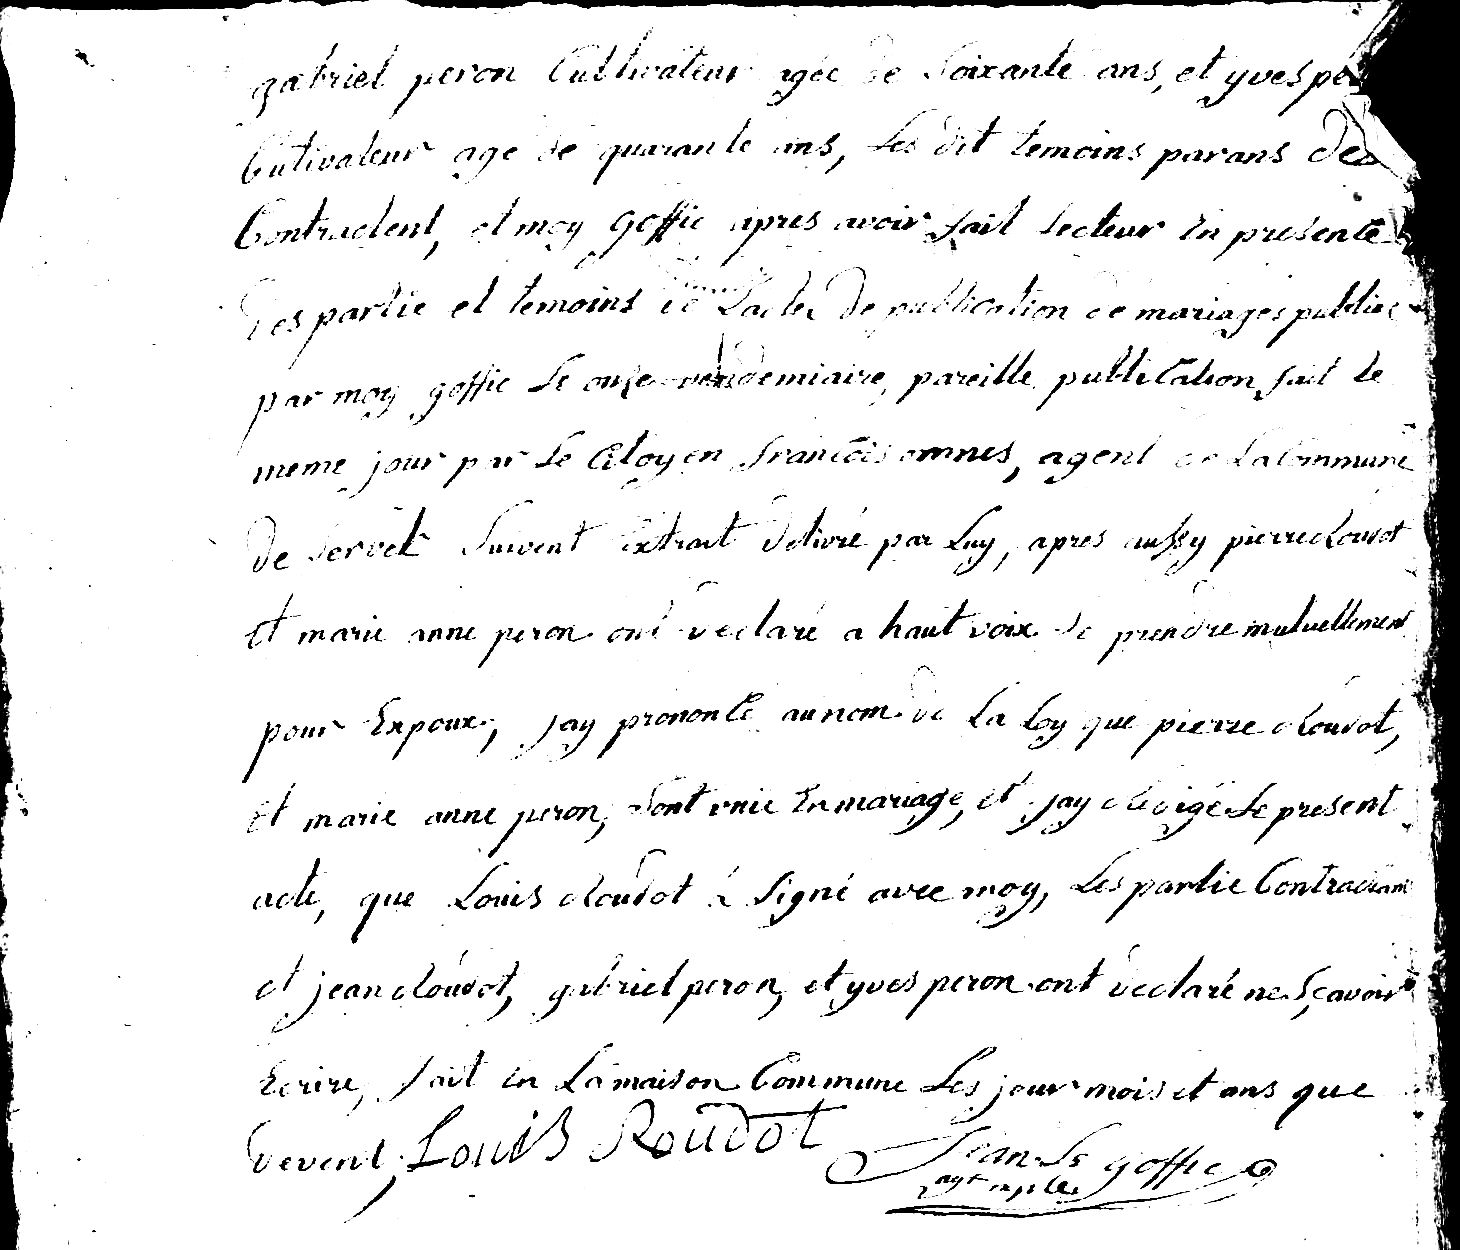 gabriel peron Cultivateur agée de Soixante ans, et yves
Cutivateur age de quarante ans, Les dit temoins parans des
Contractent, et moy goffic apres avoir fait Lecteur En presente
des partie et temoins de Lacte, de publication de mariages publiee
par moy goffic Le onse vendemiaire, pareille publication fait le
meme jour par Le Citoyen francois omnes, agent de La Commune
de Servel Suivent Extrait delivré par Luy, apres aussy pierre Roudot
Et marie anne peron ont declaré a haut voix de prendre mutuellement
pour Expoux, jay prononcé au nom de La Loy que pierre Roudot,
Et marie anne peron, Sont unie En mariage, et jay Redigé Le present
acte, que Louis Roudot à Signé avec moy, Les partie Contractant
et jean Roudot, gabriel peron, et yves peron ont declaré ne Sçavoir
Ecrire, fait En La maison Commune Les jour mois et ans que
devent, Louis Roudot
Jean Le goffic
agt mple